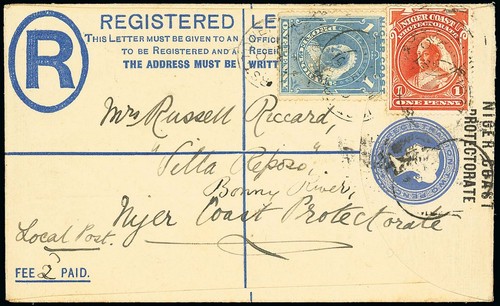 REGISTERED LE
THIS LETTER MUST BE GIVEN TO AN OFFICE
TO BE REGISTERED AND A RECEI
THE ADDRESS MUST BE WRITT
R
1
1
NIGER COAST
PROTECTORATE
1
ONE PENNY
NIGER COAST
PROTECTORATE
Mrs Russell Riccard,
"Villa Reposo,"
Bonny River,
Niger Coast Protectorate
Local Post.
FEE 2 PAID.